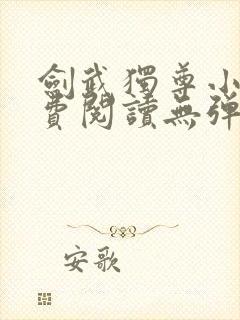 劍武獨尊小
費閱讀無彈
安歌